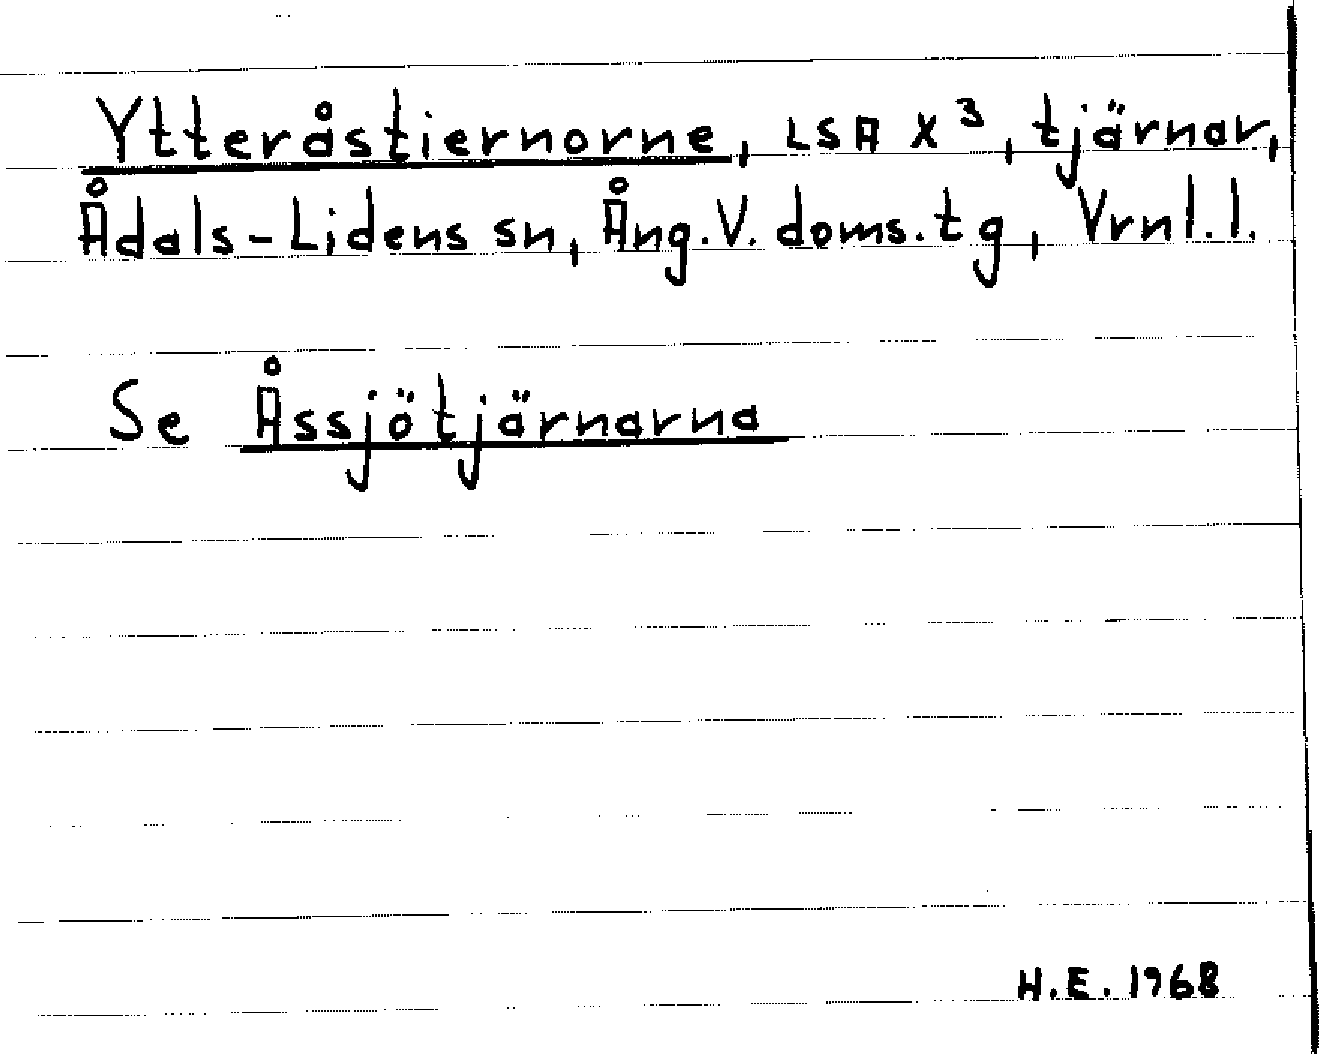 Ytteråstiernorne, LSA X³, tjärnar,
Ådals-Lidens sn, Ång.V. doms.tg, Vrnl.l.
Se Åssjötjärnarna
H.E. 1968